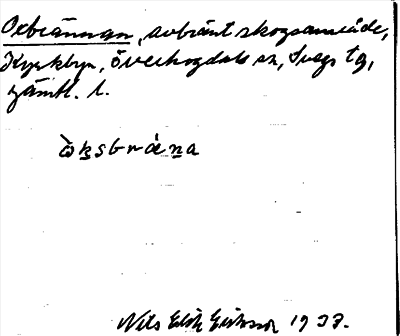 Oxbrännan, avbränt skogsområde,
Kyrkbyn, Överhogdals sn, Svegs tg,
jämtl. l.
òksbrǽna
Nils Erik Eriksson 1937.